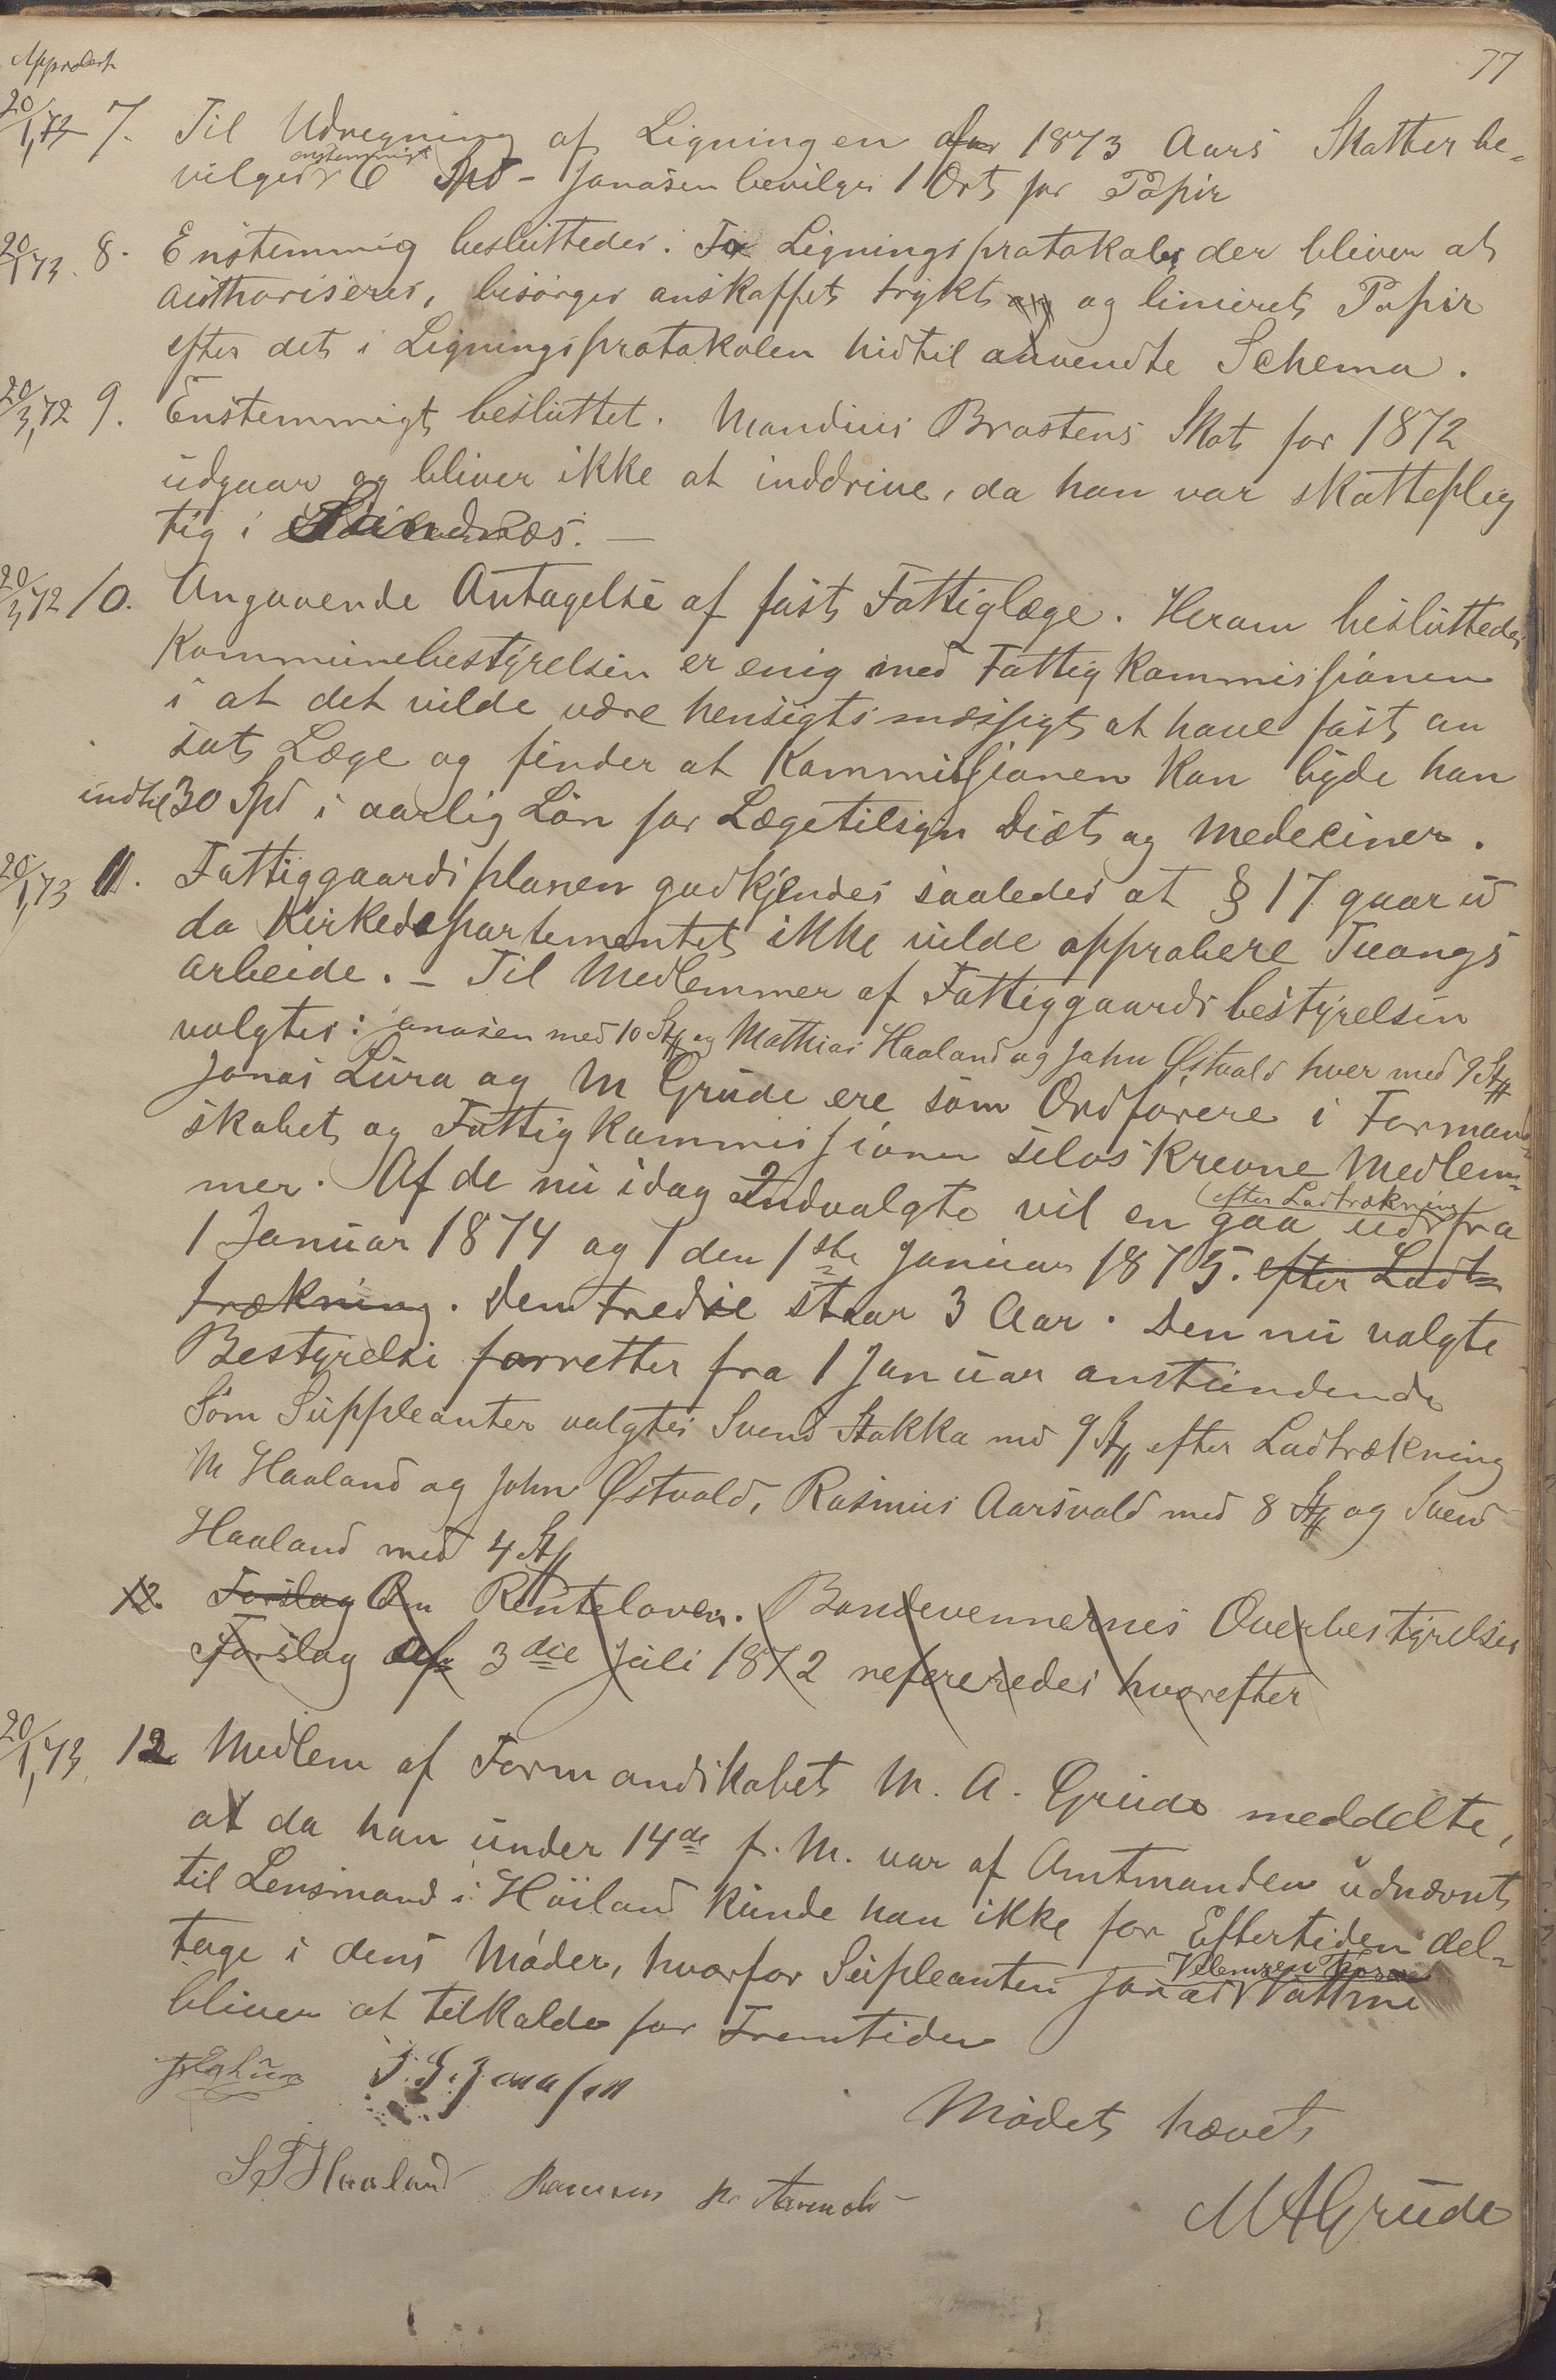 77
20/1,73 7. Til Udregning af Ligningen for 1873 Aars Skatter be-
vilges enstemmigt 6 Spd - Jonasen bevilges 1 Ort for Papir
20/1 73. 8. Enstemmig besluttedes: Ligningsprotokol der bliver at
authoriseres, besörges anskaffet trykt og linieret Papir
efter det i Ligningsprotokolen hidtil anvendte Schema.
20/3,72 9. Enstemmigt besluttet. Mandius Brostens Skat for 1872
udgaar og bliver ikke at inddrive, da han var skatteplig
tig i Sandnæs. —
20/3,72 10. Angaaende Antagelse af fast Fattiglæge. Herom besluttedes
Kommunebestyrelsen er enig med Fattigkommissionen
i at det vilde være hensigtsmæssigt at have fast an
sat Læge og finder at Kommissionen kan byde han
indtil 30 Spd i aarlig Lön for Lægetilsyn Diæt og Mediciner.
20/1,73 11. Fattiggaardsplanen godkjendes saaledes at § 17 gaar ud
da Kirkedepartementet ikke vilde approbere Tvangs
arbeide. — Til Medlemmer af Fattiggaardsbestyrelsen
valgtes: Jonasen med 10 St og Mathias Haaland og John Østvold hver med 9 St
Jonas Lura og M Grude ere som Ordförere i Formand-
skabet og Fattigkommissionen selvskrevne Medlem-
mer. Af de nu idag Indvalgte vil en (efter Lodtrækning gaa ud fra
1 Januar 1874 og 1 den 1ste Januar 1875. efter Lodt-
trækning. Den tredie staar 3 Aar. Den nu valgte
Bestyrelse forretter fra 1 Januar anstundende
Som Suppleanter valgtes Svend Stokka med 9 St efter Lodtrækning
M Haaland og John Østvold, Rasmus Aarsvold med 8 St og Svend
Haaland med 4 St
12. Forslag Om Renteloven. Bondevennernes Overbestyrelses
Forslag af 3die Juli 1872 refereredes hvorefter
20/1,73. 12 Medlem af Formandskabet M. A. Grude meddelte,
at da han under 14de f. M. var af Amtmanden udnævnt
til Lensmand i Höiland kunde han ikke for Eftertiden del-
tage i dens Möder, hvorfor Supleanten Jonas Vatne
bliver at tilkalde for Fremtiden
J. G. Jonassen
Mödet hævet
S S Haaland
M A Grude